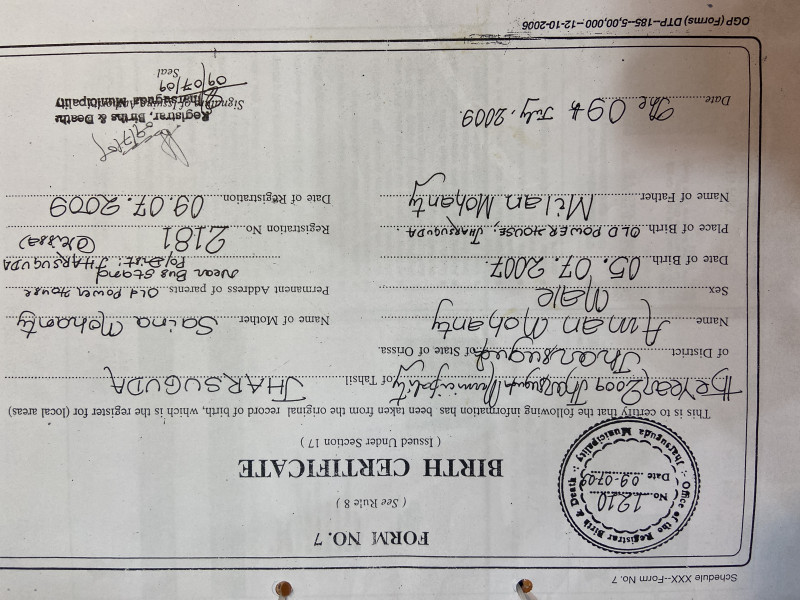 Schedule XXX--Form No. 7
FORM NO. 7
( See Rule 8 )
BIRTH CERTIFICATE
( Issued Under Section 17 )
Office of the Registrar Birth & Death
Jharsuguda Municipality
No. 1210
Date 09-07-09
This is to certify that the following information has been taken from the original record of birth, which is the register for (local areas)
The Year 2009 Jharsuguda Municipality of Tahsil JHARSUGUDA
of District Jharsuguda of State of Orissa.
Name Aman Mohanty
Name of Mother Saina Mohanty
Sex Male
Permanent Address of parents OLD POWER HOUSE
Near Bus Stand
Po/Dist: JHARSUGUDA
(Orissa)
Date of Birth 05.07.2007.
Place of Birth OLD POWER HOUSE, JHARSUGUDA.
Registration No. 2181
Name of Father Milan Mohanty
Date of Registration 09.07.2009
Date The 09th July, 2009.
09/7/09
Signature of Issuing Authority
Registrar, Births & Deaths
Jharsuguda Municipality
09/07/09
Seal
OGP (Forms) DTP--185--5,00,000--12-10-2006